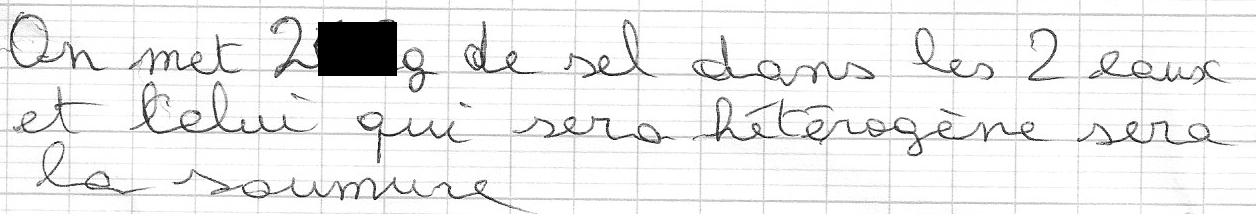 On met 2 g de sel dans les 2 eaux
et celui qui sera hétérogène sera
la soumure